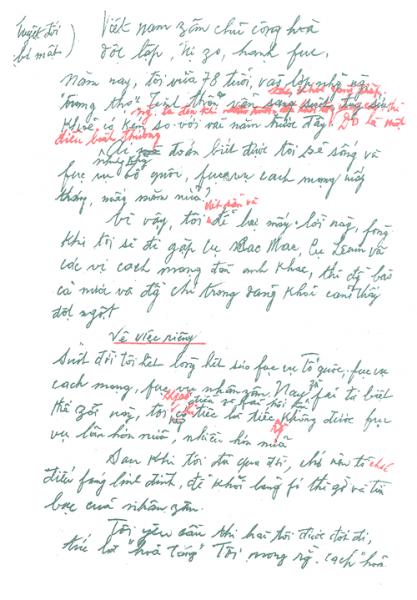 Tuyệt đối
bí mật )
Việt nam zân chủ cộng hoà
độc lập, tự zo, hạnh fúc.
Năm nay, tôi vừa 78 tuổi, vào lớp những ng
"trung thọ". Tinh thần vẫn sáng suốt, tuy sức
khoẻ có kém so với vài năm trước đây. Đó là một
điều bình thường
Ai đoán biết được tôi sẽ sống và
fục vụ tổ quốc, fục vụ cách mạng mấy
tháng, mấy năm nữa?
Vì vậy, tôi để lại mấy lời này, fòng
khi tôi sẽ đi gặp cụ Các Mác, Cụ Lênin và
các vị cách mạng đàn anh khác, thì đg bào
cả nước và đg chí trong đảng khỏi cảm thấy
đột ngột
Về việc riêng
Suốt đời tôi hết lòng hết sức fục vụ Tổ quốc, fục vụ
cách mạng, fục vụ nhân zân. Nay zù fải từ biệt
thế zới này, tôi chỉ tiếc là tiếc không được fục
vụ lâu hơn nữa, nhiều hơn nữa
Sau khi tôi đã qua đời, chớ nên tổ chức
điếu fúng linh đình, để khỏi lãng fí thì zờ và tiền
bạc của nhân zân.
Tôi yêu cầu thi hài tôi được đốt đi,
tức là "hoả táng". Tôi mong rằng cách "hoả